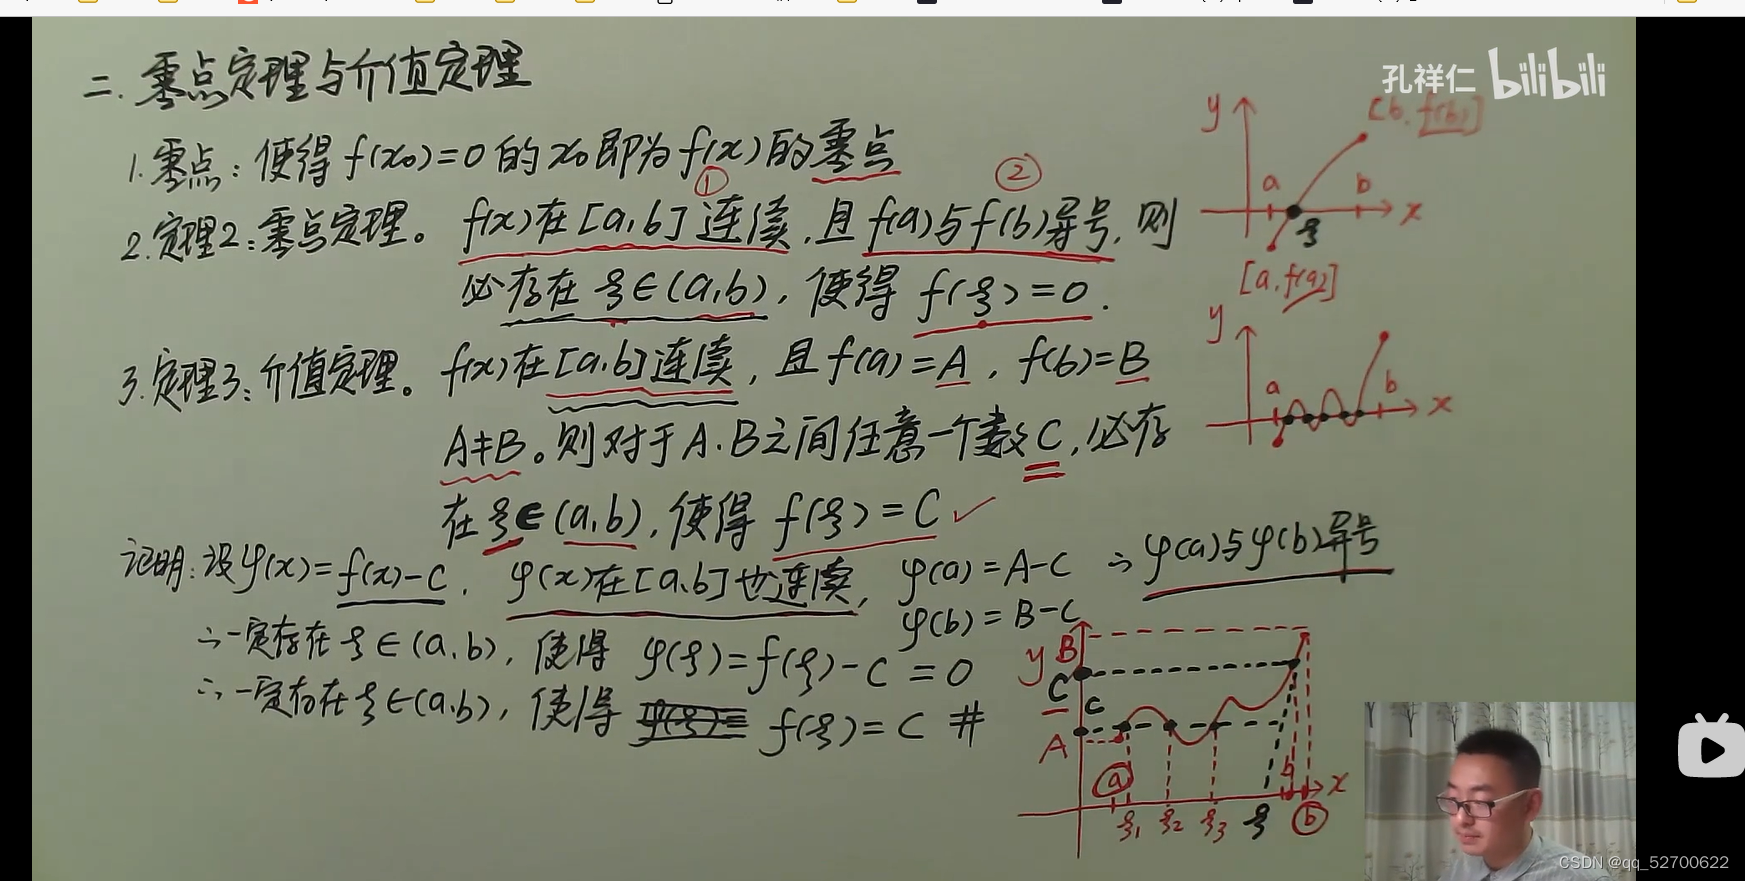 孔祥仁 bilibili
二.零点定理与介值定理
1.零点:使得f(x₀)=0的x₀即为f(x)的零点
① ②
2.定理2:零点定理。f(x)在[a,b]连续,且f(a)与f(b)异号,则
必存在ξ∈(a,b),使得f(ξ)=0.
3.定理3:介值定理。f(x)在[a,b]连续,且f(a)=A,f(b)=B
A≠B。则对于A.B之间任意一个数C,必存
在ξ∈(a,b),使得f(ξ)=C
证明:设φ(x)=f(x)-C.φ(x)在[a,b]也连续,φ(a)=A-C ∴φ(a)与φ(b)异号
φ(b)=B-C
∴一定存在ξ∈(a,b),使得φ(ξ)=f(ξ)-C=0
∴一定存在ξ∈(a,b),使得 f(ξ)=C #
y [b,f(b)]
a b x
ξ
[a,f(a)]
y
a b x
y B
C c
A
a b x
ξ₁ ξ₂ ξ₃ ξ b
CSDN @qq_52700622